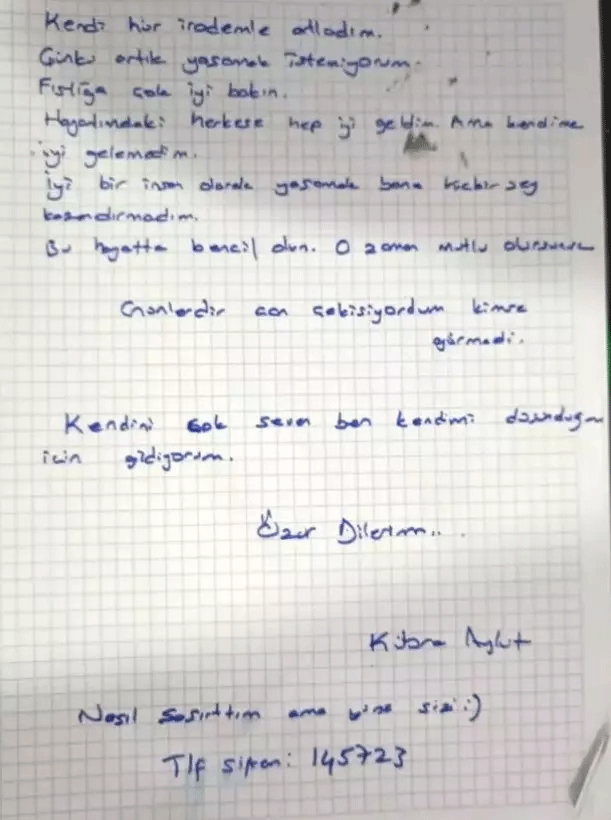 Kendi hür irademle atladım.
Çünkü artık yaşamak istemiyorum.
Fıstığa çok iyi bakın.
Hayatımdaki herkese hep iyi geldim. Ama kendime
iyi gelemedim.
İyi bir insan olarak yaşamak bana hiçbir şey
kazandırmadı.
Bu hayatta bencil olun. O zaman mutlu olursunuz
Günlerdir can çekişiyordum kimse
görmedi.
Kendini çok seven ben kendimi düşündüğüm
için gidiyorum.
Özür Dilerim...
Kübra Aykut
Nasıl şaşırttım ama yine sizi :)
Tlf şifrem: 145723